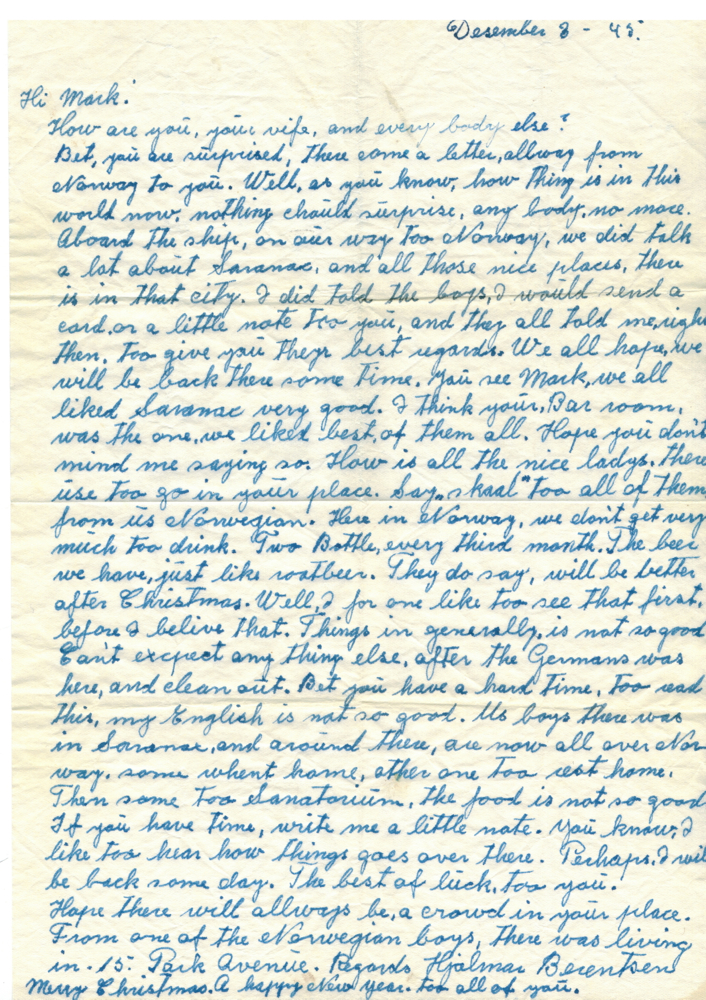 Desember 8 - 45.
Hi Mark!
How are you, your vife, and every body else?
Bet, you are surprised, there come a letter, allway from
Norway to you. Well, as you know, how thing is in this
world now, nothing chould surprise, any body, no more.
Aboard the ship, on our way too Norway, we did talk
a lot about Saranac, and all those nice places, there
is in that city. I did told the boys, I would send a
card, or a little note too you, and they all told me, righ
then, too give you theyr best regards. We all hope, we
will be back there some time. You see Mark, we all
liked Saranac very good. I think your, Bar room,
was the one, we liked best, of them all. Hope you don't
mind me saying so. How is all the nice ladys, there
use too go in your place. Say „skaal" too all of them
from us Norwegian. Here in Norway, we don't get very
much too drink. Two Bottle, every third month. The beer
we have, just like rootbeer. They do say, will be better
after Christmas. Well, I for one like too see that first,
before I belive that. Things in generally, is not so good
Can't excpect any thing else, after the Germans was
here, and clean out. Bet you have a hard time, too read
this, my English is not so good. Us boys there was
in Saranac, and around there, are now all over Nor
way, some whent home, other one too rest home.
Then some too Sanatorium, the food is not so good
If you have time, write me a little note. You know, I
like too hear how things goes over there. Perhaps, I wil
be back some day. The best of luck, too you.
Hope there will allways be, a crowd in your place.
From one of the Norwegian boys, there was living
in. 15. Park Avenue. Regards Hjalmar Berentsen
Merry Christmas. A happy New Year. too all of you.